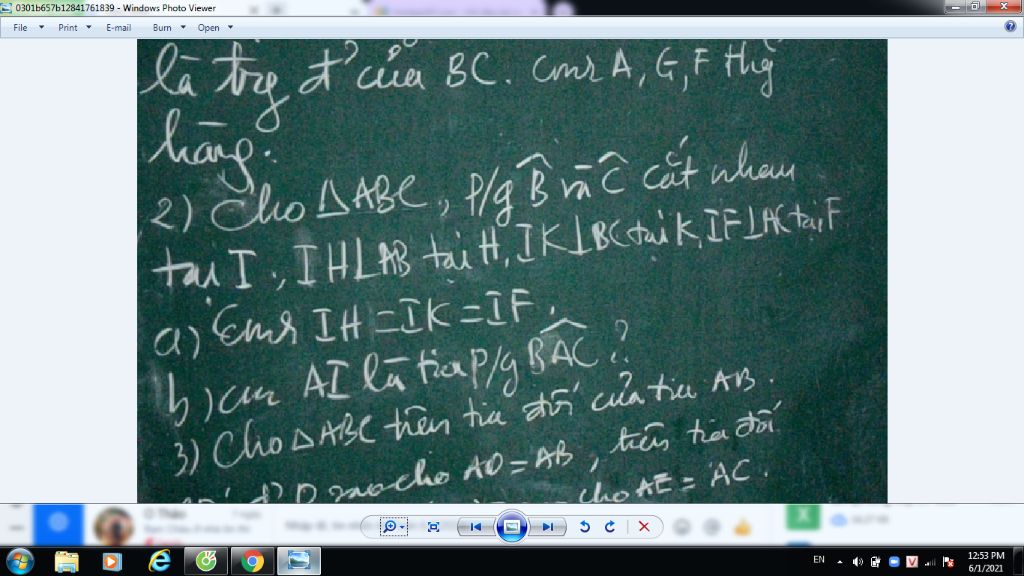 0301b657b12841761839 - Windows Photo Viewer
File Print E-mail Burn Open
là trg đ' của BC. Cmr A, G, F thg
hàng.
2) Cho △ABC, p/g B̂ và Ĉ cắt nhau
tại I, IH⊥AB tại H, IK⊥BC tại K, IF⊥AC tại F
a) Cmr IH = IK = IF.
b) cm AI là tia p/g BÂC?
3) Cho △ABC trên tia đối của tia AB.
D sao cho AD = AB, trên tia đối
cho AE = AC.
EN
12:53 PM
6/1/2021